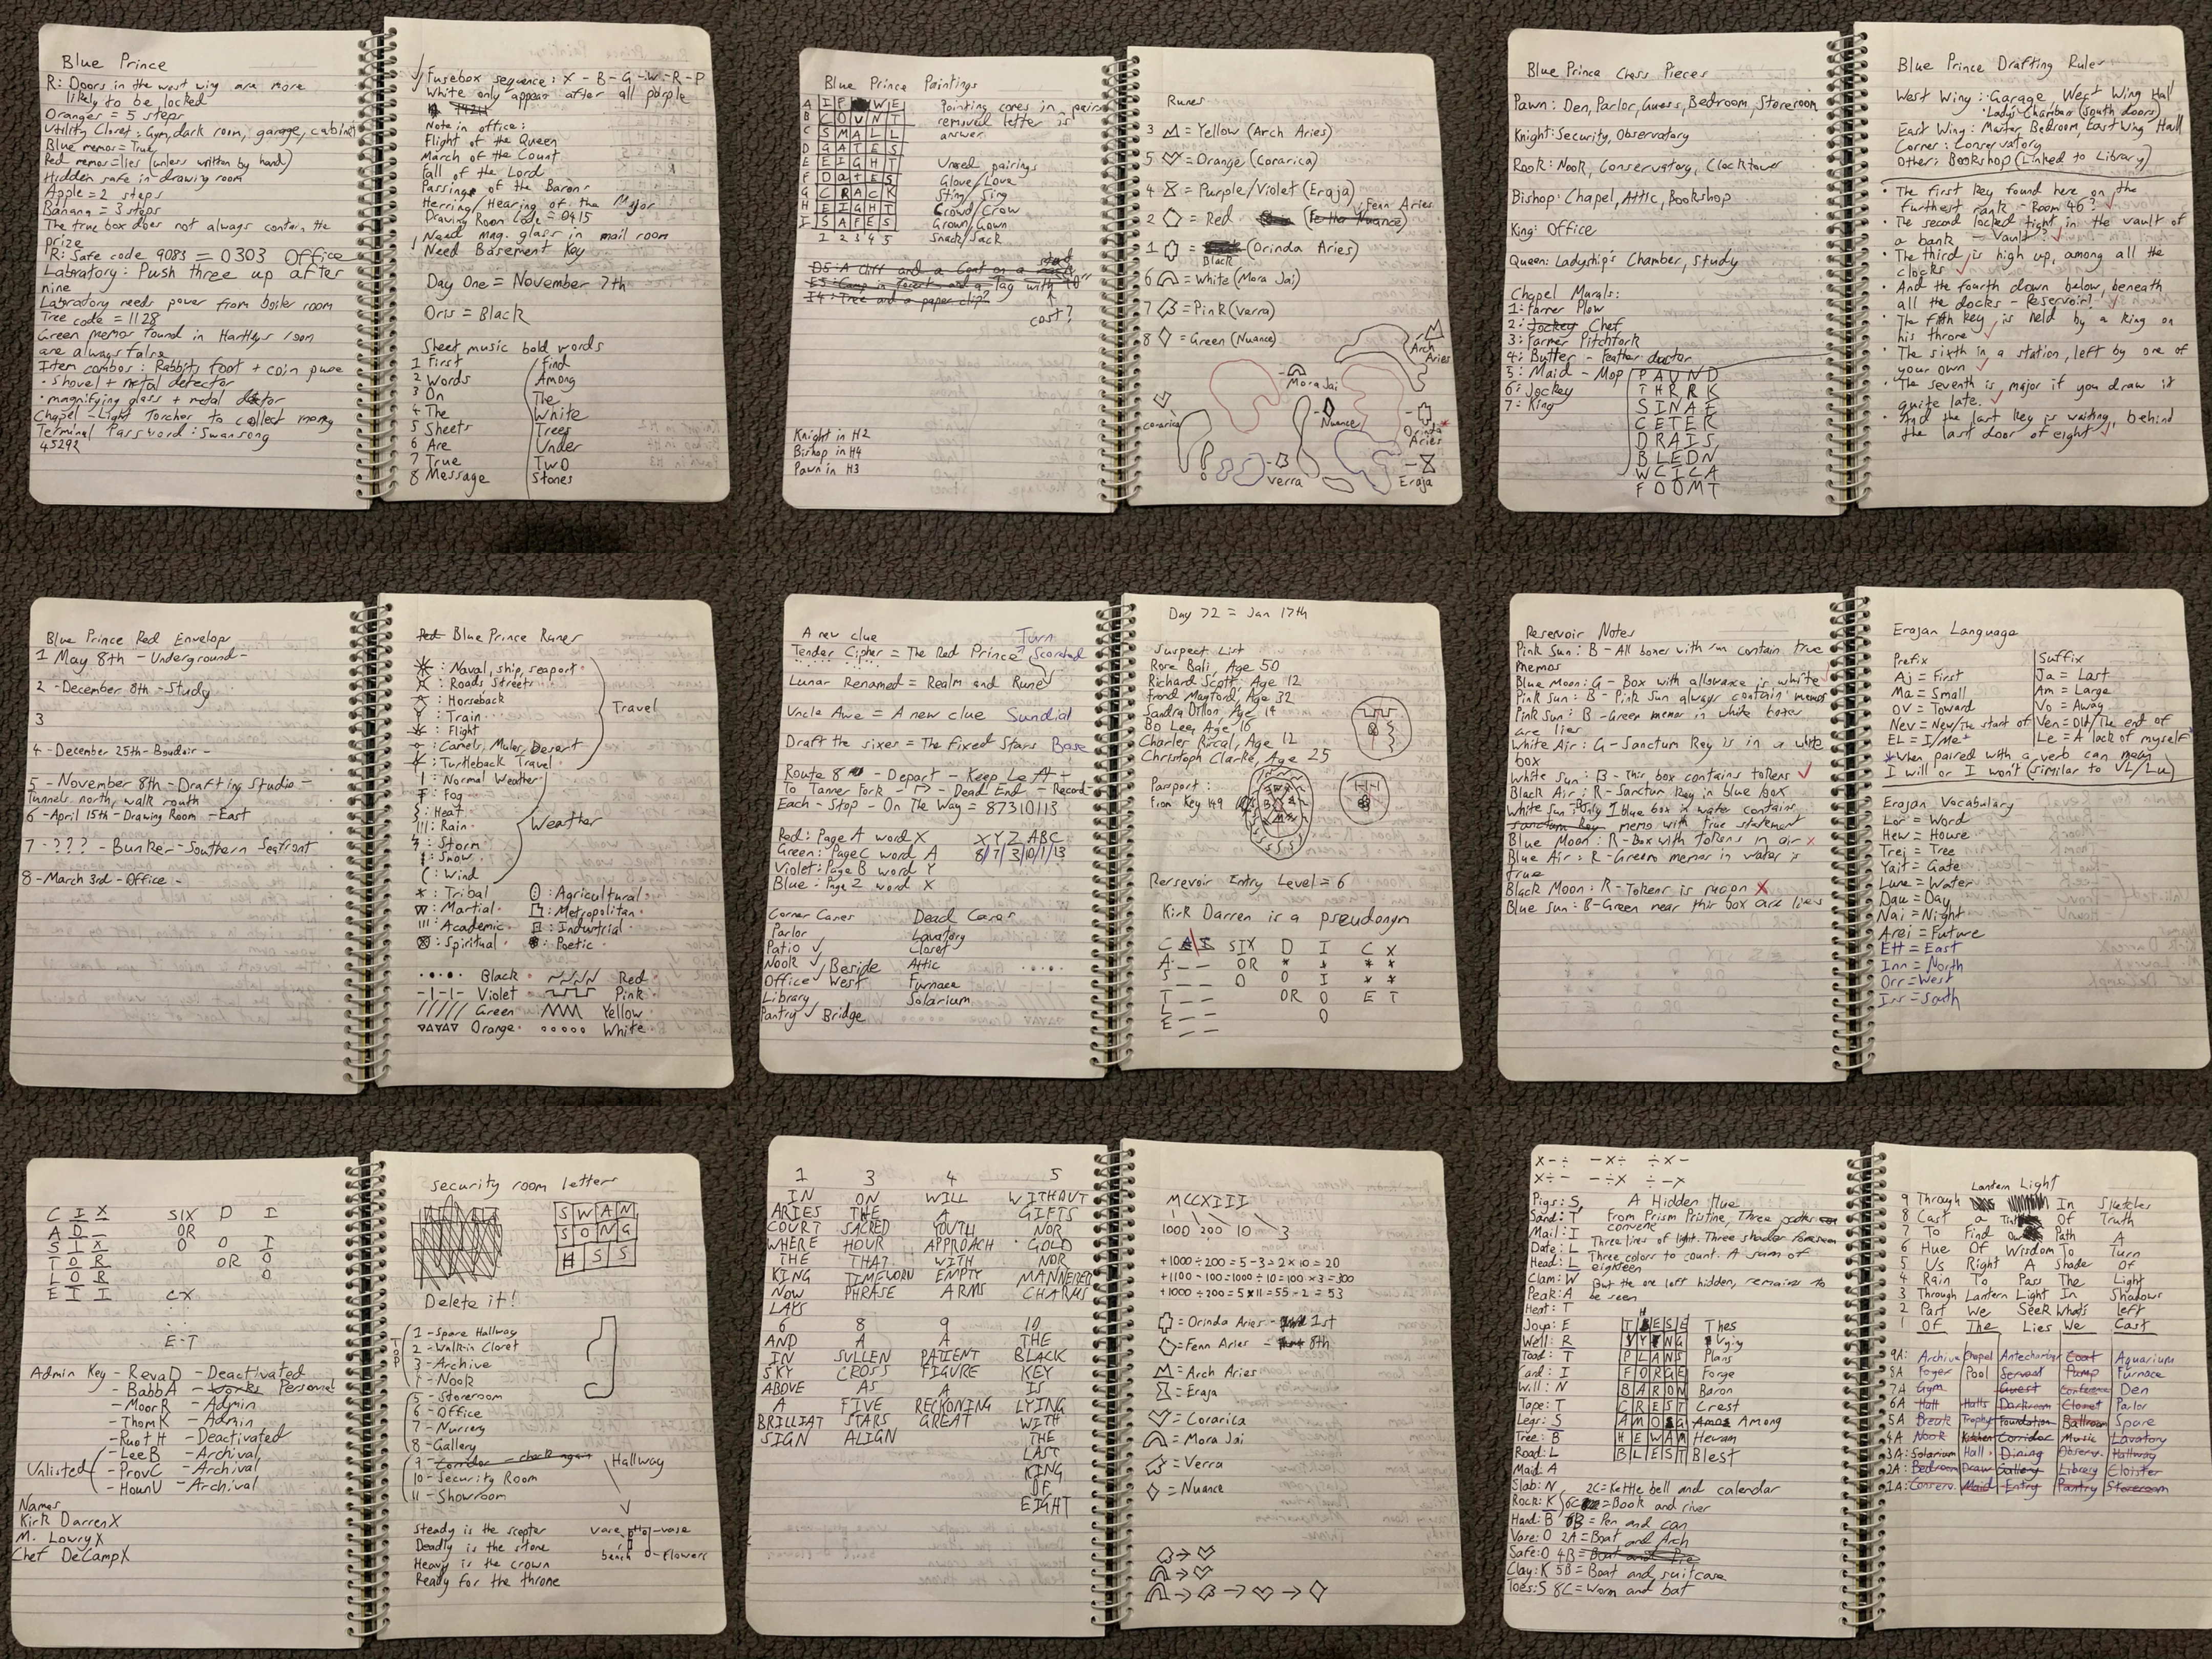 Blue Prince
R: Doors in the west wing are more
likely to be locked
Oranges = 5 steps
Utility Closet: Gym, dark room, garage, cabinet
Blue memos = True,
Red memos = lies (unless written by hand)
Hidden safe in drawing room
Apple = 2 steps
Banana = 3 steps
The true box does not always contain the
prize
R: Safe code 9083 = 0303 Office
Labratory: Push three up after
nine
Labratory needs power from boiler room
Tree code = 1128
Green memos found in Hartleys room
are always false
Item combos: Rabbits foot + coin purse
• shovel + metal detector
• magnifying glass + metal detector
Chapel - Light Torches to collect money
Terminal Password: Swansong
45292
Fusebox sequence: X - B - G - W - R - P
White only appear after all purple
Note in office:
Flight of the Queen
March of the Count
Fall of the Lord
Passing of the Barons
Herring/Hearing of the Major
Drawing Room Code = 0415
Need mag. glass in mail room
Need Basement Key
Day One = November 7th
Oris = Black
Sheet music bold words
1 First / find
2 Words Among
3 On The
4 The White
5 Sheets Trees
6 Are Under
7 True Two
8 Message Stones
Blue Prince Paintings
A I F W E
B C O U N T
C S M A L L
D G A T E S
E E I G H T
F D a t E S
G C R A C K
H E I G H T
I S A F E S
1 2 3 4 5
Painting comes in pairs
removal letter is
answer
Unused pairings
Glove/Love
Sting/Sing
Crowd/Crow
Grown/Gown
Snack/Sack
D5: A cliff and a Goat on a
E5: Camp in forest and a Tag with 10
I4: Tree and a paper clip?
cost?
Knight in H2
Bishop in H4
Pawn in H3
Runes
3 = Yellow (Arch Aries)
5 = Orange (Corarica)
4 = Purple/Violet (Eraja)
2 = Red Fenn Aries
1 = Black (Orinda Aries)
6 = White (Mora Jai)
7 = Pink (Verra)
8 = Green (Nuance)
Arch
Aries
Mora Jai
Corarica
Nuance
Orinda
Aries
Verra
Eraja
Blue Prince Chess Pieces
Pawn: Den, Parlor, Guess, Bedroom, Storeroom
Knight: Security, Observatory
Rook: Nook, Conservatory, Clocktower
Bishop: Chapel, Attic, Bookshop
King: Office
Queen: Ladyship's Chamber, Study
Chapel Murals:
1: Farmer Plow
2: Jockey Chef
3: Farmer Pitchfork
4: Butter - Feather duster
5: Maid - Mop
6: Jockey
7: King
P A U N D
T H R R K
S I N A E
C E T E R
D R A I S
B L E D N
W C I C A
F O O M T
Blue Prince Drafting Rules
West Wing: Garage, West Wing Hall
Lady's Chamber (South doors)
East Wing: Master Bedroom, East Wing Hall
Corner: Conservatory
Other: Bookshop (Linked to Library)
• The first key found here on the
furthest rank - Room 46?
• The second locked tight in the vault of
a bank - Vault?
• The third is high up, among all the
clocks
• And the fourth down below, beneath
all the docks - Reservoir?
• The fifth key is held by a king on
his throne
• The sixth in a station, left by one of
your own
• The seventh is major if you draw it
quite late.
• And the last key is waiting, behind
the last door of eight
Blue Prince Red Envelops
1 May 8th - Underground -
2 - December 8th - Study
3
4 - December 25th - Boudoir -
5 - November 8th - Drafting Studio -
Tunnels north, walk south
6 - April 15th - Drawing Room - East
7 - ??? - Bunker - Southern Seafront
8 - March 3rd - Office -
Red Blue Prince Runes
: Naval, ship, seaport
: Roads Streets
: Horseback
: Train
: Flight
: Camels, Mules, Desert
: Turtleback Travel
Travel
: Normal Weather
: Fog
: Heat
: Rain
: Storm
: Snow
: Wind
Weather
: Tribal : Agricultural
: Martial : Metropolitan
: Academic : Industrial
: Spiritual : Poetic
Black Red
Violet Pink
Green Yellow
Orange White
A new clue Turn
Tender Cipher = The Red Prince Scorched
Lunar Renamed = Realm and Runes
Uncle Awe = A new clue Sundial
Draft the sixes = The fixed Stars Base
Route 8 - Depart - Keep Left -
To Tanner Fork - Dead End - Record
Each - Stop - On The Way = 87310113
Red: Page A word X X Y Z A B C
Green: Page C word A 8/7/3/10/1/13
Violet: Page B word Y
Blue: Page Z word X
Corner Cares Dead Cares
Parlor Lavatory
Patio Closet
Nook Beside Attic
Office West Furnace
Library Solarium
Pantry Bridge
Day 72 = Jan 17th
Suspect List
Rose Bali, Age 50
Richard Scott, Age 12
Frond Mayford, Age 32
Sandra Dillon, Age 14
Bo Lee, Age 10
Charles Rascal, Age 12
Christoph Clarke, Age 25
Passport:
From Key 149
Rersevoir Entry Level = 6
Kirk Darren is a pseudonym
C A I SIX D I C X
A _ _ OR * * * *
S _ _ O O I * *
T _ _ OR O E T
L _ _ O
E _ _
Reservoir Notes
Pink Sun: B - All boxes with sun contain true
memos
Blue Moon: G - Box with allowance is white
Pink Sun: B - Pink Sun always contain memos
Pink Sun: B - Green memos in white boxes
are lies
White Air: G - Sanctum Key is in a white
box
White Sun: B - This box contains tokens
Black Air: R - Sanctum key in blue box
White Sun - Only 1 blue box in water contains
sanctum key memo with true statement
Blue Moon: R - Box with tokens in air
Blue Air: R - Greens memos in water is
true
Black Moon: R - Tokens is moon
Blue Sun: B - Green near this box are lies
Erajan Language
Prefix Suffix
Aj = First Ja = Last
Ma = Small Am = Large
OV = Toward Vo = Away
Nev = New/The start of Ven = Old/The end of
EL = I/Me* Le = A lack of myself*
*When paired with a verb can mean
I will or I won't (similar to VL/Lu)
Erajan Vocabulary
Lor = Word
Hew = House
Trei = Tree
Yait = Gate
Luwe = Water
Dau = Day
Nai = Night
Arei = Future
Ett = East
Inn = North
Orr = West
Irr = South
C I X SIX D I
A D _ OR
S I X O O I
T O R OR O
L O R O
E I I CX
E T
Admin Key - RevaD - Deactivated
- BabbA - Works Personal
- MoorR - Admin
- ThomK - Admin
- RuotH - Deactivated
- LeeB - Archival
Unlisted - ProvC - Archival
- HounV - Archival
Names
Kirk Darren X
M. Lowry X
Chef DeCamp X
security room letters
S W A N
S O N G
H S S
Delete it!
TOP
1 - Spare Hallway
2 - Walk-in Closet
3 - Archive
4 - Nook
5 - Storeroom
6 - Office
7 - Nursery
8 - Gallery
9 - Corridor - check again
10 - Security Room
11 - Showroom
Hallway
Steady is the scepter
Deadly is the stone
Heavy is the crown
Ready for the throne
vase vase
bench flowers
1 3 4 5
IN ON WILL WITHOUT
ARIES THE A GIFTS
COURT SACRED YOUTH NOR
WHERE HOUR APPROACH GOLD
THE THAT WITH NOR
KING TIMEWORN EMPTY MANNERED
NOW PHRASE ARMS CHARMS
LAYS
6 8 9 10
AND A A THE
IN SULLEN PATIENT BLACK
SKY CROSS FIGURE KEY
ABOVE AS A IS
A FIVE RECKONING LYING
BRILLIAT STARS GREAT WITH
SIGN ALIGN THE
LAST
KING
OF
EIGHT
MCCXIII
1000 200 10 3
+1000÷200=5-3=2×10=20
+1100-100=1000÷10=100×3=300
+1000÷200=5×11=55-2=53
= Orinda Aries - 1st
= Fenn Aries - 8th
= Arch Aries
= Eraja
= Corarica
= Mora Jai
= Verra
= Nuance
X-÷ -X÷ ÷X-
X÷- -÷X ÷-X
Pigs: S A Hidden Hue
Sand: T From Prism Pristine, Three paths
Mail: I convene
Date: L Three lines of light. Three shades foreseen
Head: L Three colors to count. A sum of
eighteen
Clam: W But the one left hidden, remains to
Peak: A be seen
Hent: T
Joyp: E T H E S E Thes
Well: R Vying
Toad: T P L A N S Plans
Card: I F O R G E Forge
Will: N B A R O N Baron
Tape: T C R E S T Crest
Legs: S A M O S G Amos Among
Tree: B H E W A M Hewam
Road: L B L E S T Blest
Maid: A
Slab: N 2C = Kettle bell and calendar
Rock: K 6C = Book and river
Hand: B 7B = Pen and can
Vase: O 2A = Boat and Arch
Safe: O 4B = Boat and Pie
Clay: K 5B = Boat and suitcase
Toes: S 8C = Worm and bat
Lantern Light
9 Through In Sketches
8 Cast a Of Truth
7 To Find Our Path A
6 Hue Of Wisdom To Turn
5 Us Right A Shade Of
4 Rain To Pass The Light
3 Through Lantern Light In Shadows
2 Past We Seek What's Left
1 Of The Lies We Cast
9A: Archive Chapel Antechamber Coat Aquarium
8A Foyer Pool Servant Pump Furnace
7A Gym Guest Conference Den
6A Hall Halls Darkroom Closet Parlor
5A Break Trophy Foundation Ballroom Spare
4A Nook Kitchen Corridor Music Lavatory
3A: Solarium Hall Dining Observ. Hallway
2A: Bedroom Draw Gallery Library Cloister
1A: Conserv. Maid Entry Pantry Storeroom